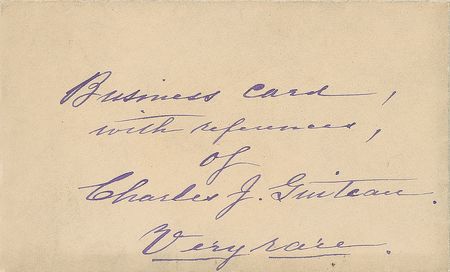 Business card,
with references,
of
Charles J. Guiteau.
Very rare.